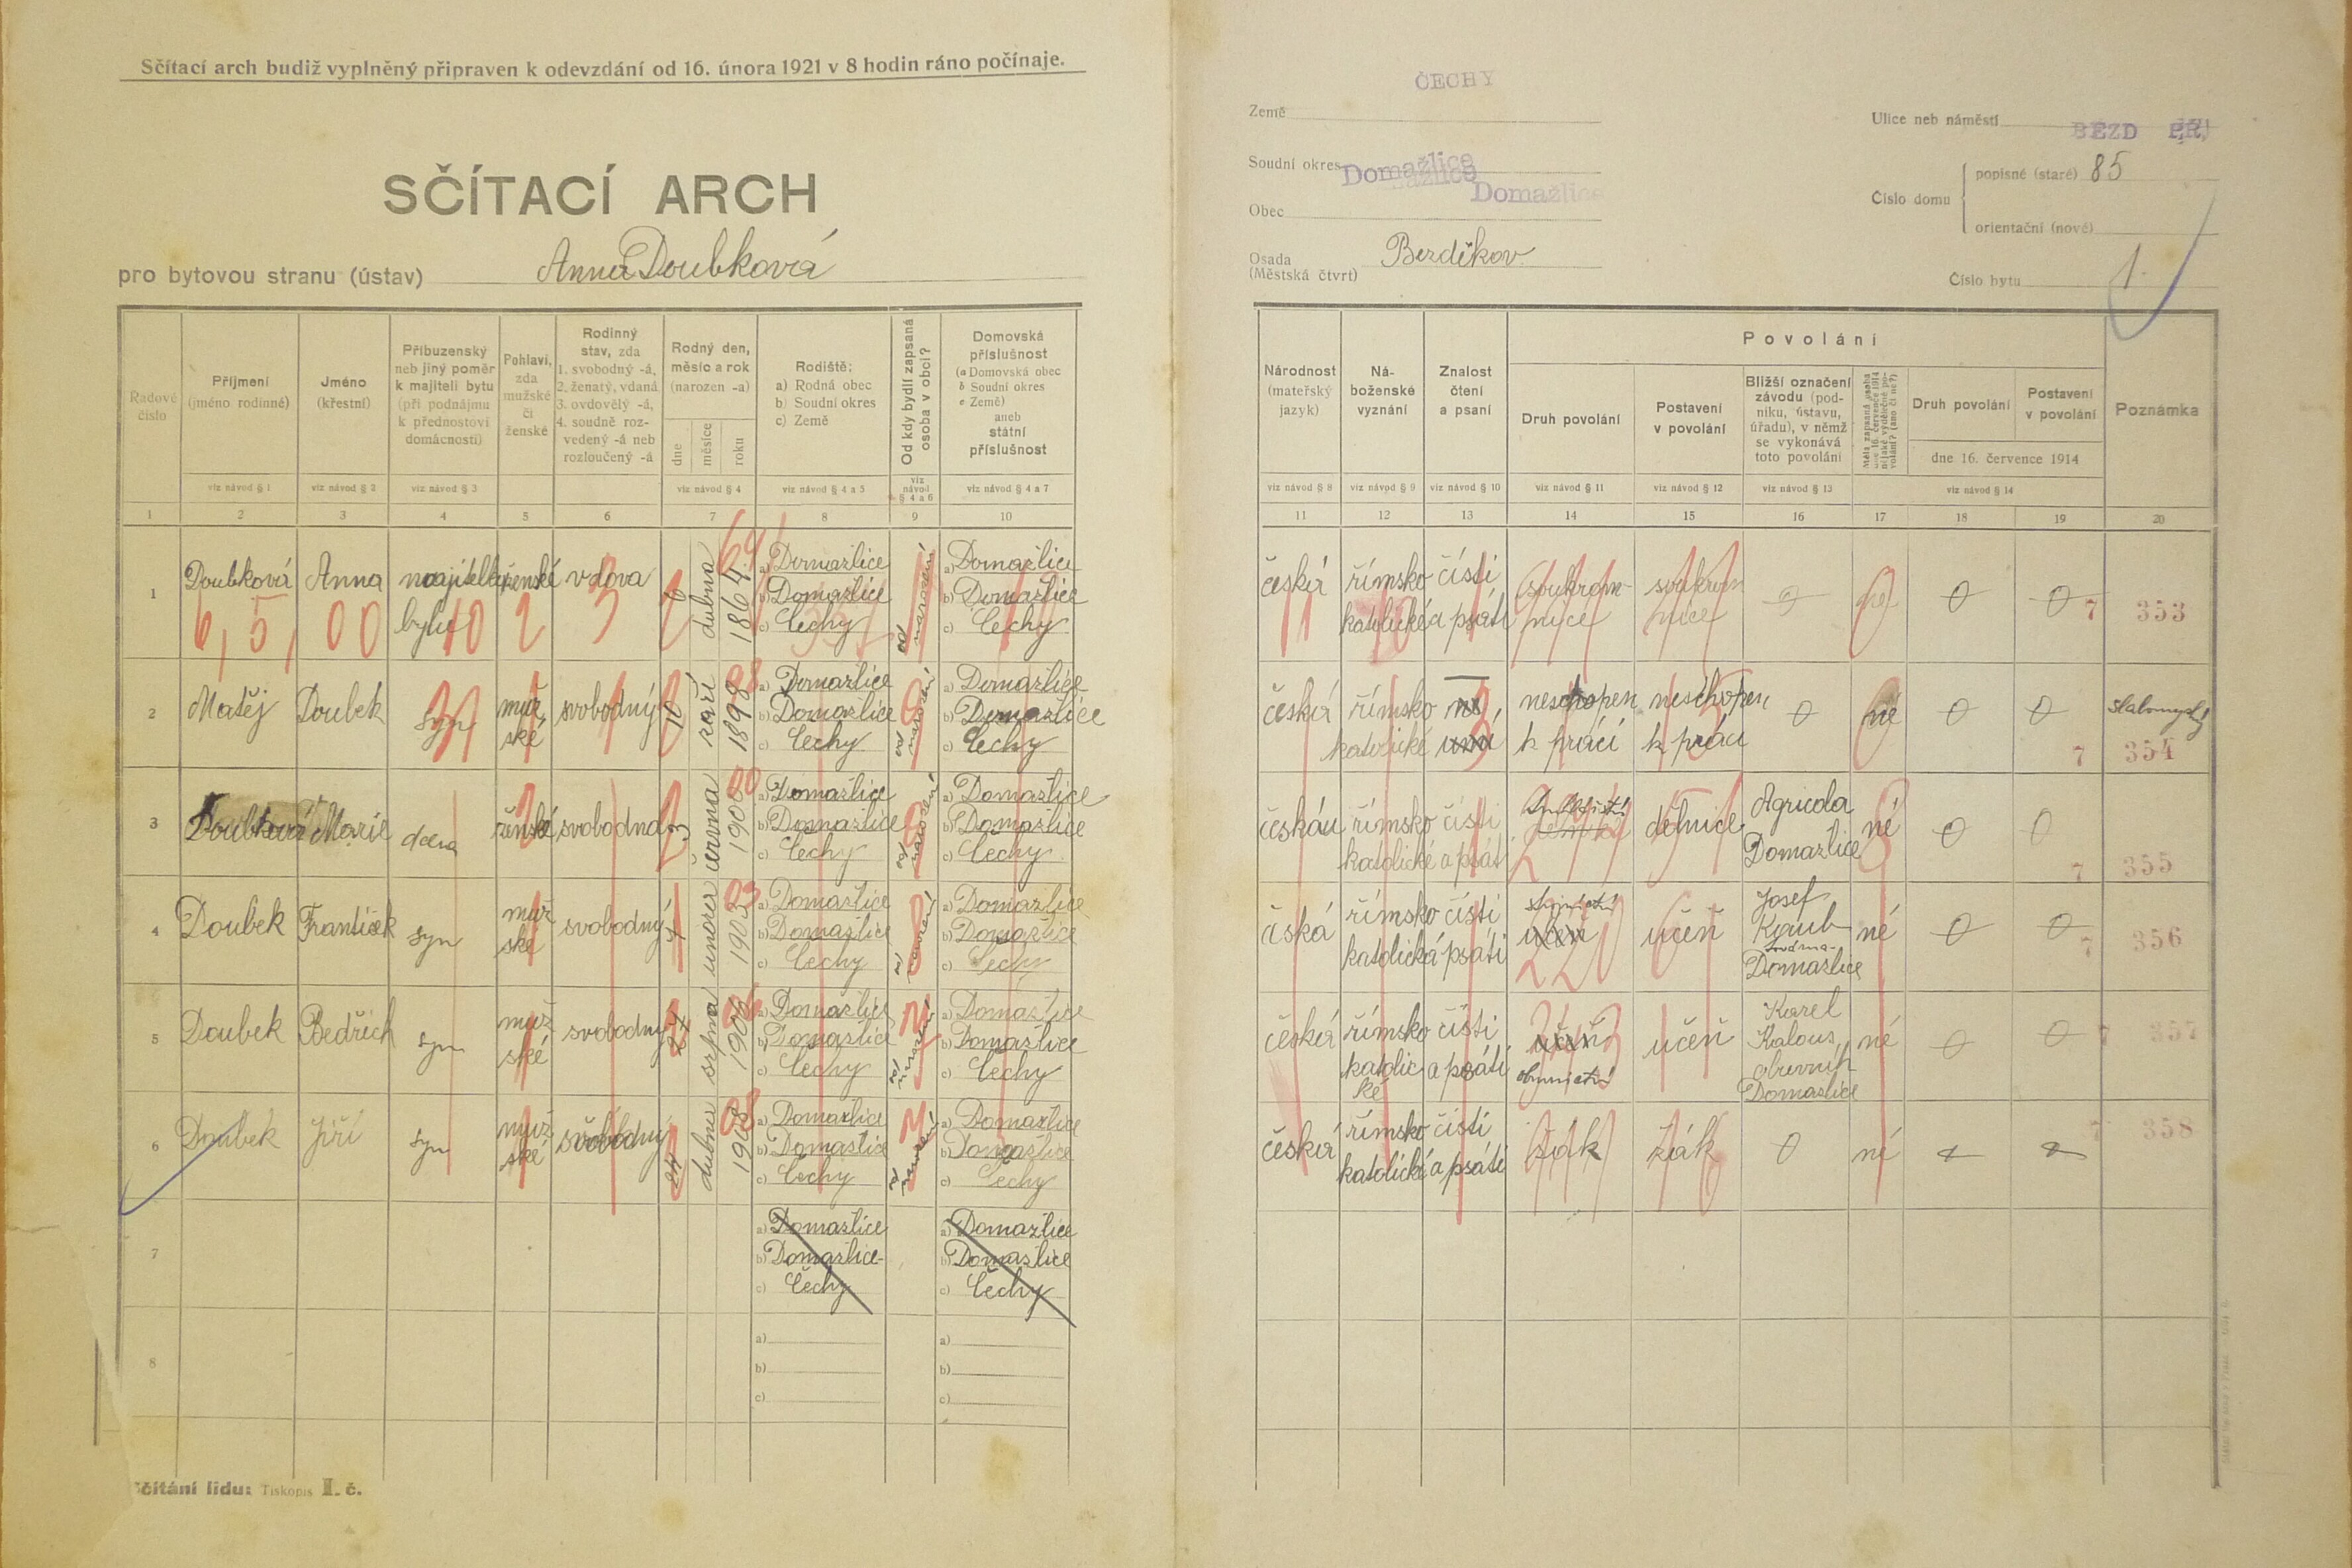 Sčítací arch budiž vyplněný připraven k odevzdání od 16. února 1921 v 8 hodin ráno počínaje.
SČÍTACÍ ARCH
pro bytovou stranu (ústav) Anna Doubková
ČECHY
Země
Soudní okres Domažlice
Domažlice
Obec
Osada
(Městská čtvrt) Bezděkov
Ulice neb náměstí BEZD PŘ.
Číslo domu
popisné (staré) 85
orientační (nové)
Číslo bytu 1.
Řadové číslo
Příjmení (jméno rodinné)
Jméno (křestní)
Příbuzenský neb jiný poměr k majiteli bytu (při podnájmu k přednostovi domácnosti)
Pohlaví, zda mužské či ženské
Rodinný stav, zda
1. svobodný -á,
2. ženatý, vdaná
3. ovdovělý -á,
4. soudně rozvedený -á neb rozloučený -á
Rodný den, měsíc a rok (narozen -a)
dne měsíce roku
Rodiště:
a) Rodná obec
b) Soudní okres
c) Země
Od kdy bydlí zapsaná osoba v obci?
Domovská příslušnost
(a Domovská obec
b Soudní okres
c Země)
aneb
státní příslušnost
viz návod § 1 viz návod § 2 viz návod § 3 viz návod § 4 viz návod § 4 a 5 viz návod § 4 a 6 viz návod § 4 a 7
1 2 3 4 5 6 7 8 9 10
Národnost (mateřský jazyk)
Náboženské vyznání
Znalost čtení a psaní
Povolání
Druh povolání
Postavení v povolání
Bližší označení závodu (podniku, ústavu, úřadu), v němž se vykonává toto povolání
Měla zapsaná osoba dne 16. července 1914 nijaké výdělečné povolání? (ano či ne?)
Druh povolání
Postavení v povolání
dne 16. července 1914
Poznámka
viz návod § 8 viz návod § 9 viz návod § 10 viz návod § 11 viz návod § 12 viz návod § 13 viz návod § 14
11 12 13 14 15 16 17 18 19 20
1 Doubková Anna majitelka bytu ženské vdova 6 dubna 1864 a) Domažlice b) Domažlice c) Čechy od narození a) Domažlice b) Domažlice c) Čechy
6, 5, 00 10 2 3 64
česká římsko katolické čísti a psáti soukromnice soukromnice 0 né 0 0 7 353
2 Matěj Doubek syn mužské svobodný 10 září 1898 a) Domažlice b) Domažlice c) Čechy od narození a) Domažlice b) Domažlice c) Čechy
98
česká římsko katolické neschopen k práci neschopen k práci 0 né 0 0 slabomyslý 7 354
3 Doubková Marie dcera ženské svobodná 23 června 1900 a) Domažlice b) Domažlice c) Čechy od narození a) Domažlice b) Domažlice c) Čechy
00
českáu římsko katolické čísti a psát dělnice Agricola Domažlice né 0 0 7 355
4 Doubek František syn mužské svobodný února 1903 a) Domažlice b) Domažlice c) Čechy od narození a) Domažlice b) Domažlice c) Čechy
03
česká římsko katolická čísti psáti učeň učeň Josef Domažlice né 0 0 7 356
5 Doubek Bedřich syn mužské svobodný srpna 1906 a) Domažlice b) Domažlice c) Čechy od narození a) Domažlice b) Domažlice c) Čechy
06
česká římsko katolické čísti a psáti učeň obuvnictví učeň Karel Kalous, obuvník Domažlice né 0 0 7 357
6 Doubek Jiří syn mužské svobodný 24 dubna 1908 a) Domažlice b) Domažlice c) Čechy od narození a) Domažlice b) Domažlice c) Čechy
08
česká římsko katolické čísti a psáti žák žák 0 né 7 358
7 a) Domažlice b) Domažlice c) Čechy a) Domažlice b) Domažlice c) Čechy
8 a) b) c) a) b) c)
Sčítání lidu: Tiskopis I. č.